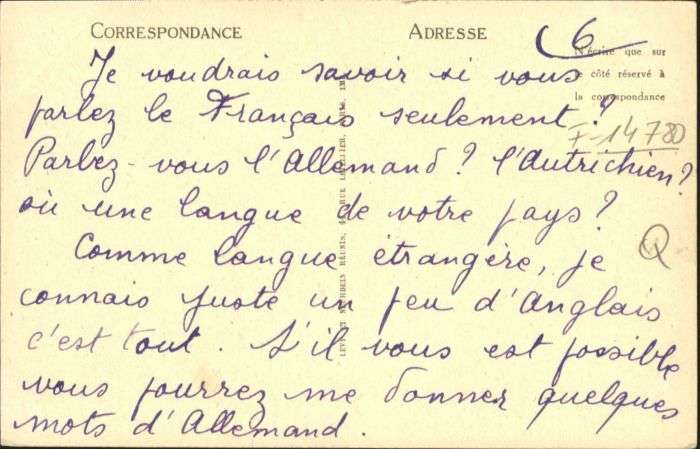 CORRESPONDANCE
ADRESSE
6
N'écrire que sur
le côté réservé à
la correspondance
Je voudrais savoir si vous
parlez le Français seulement?
F-14780
Parlez-vous l'Allemand? l'Autrichien?
où une langue de votre pays?
Q
Comme langue étrangère, je
connais juste un peu d'Anglais
c'est tout. S'il vous est possible
vous pourrez me donner quelques
mots d'Allemand.
RÉUNIS,